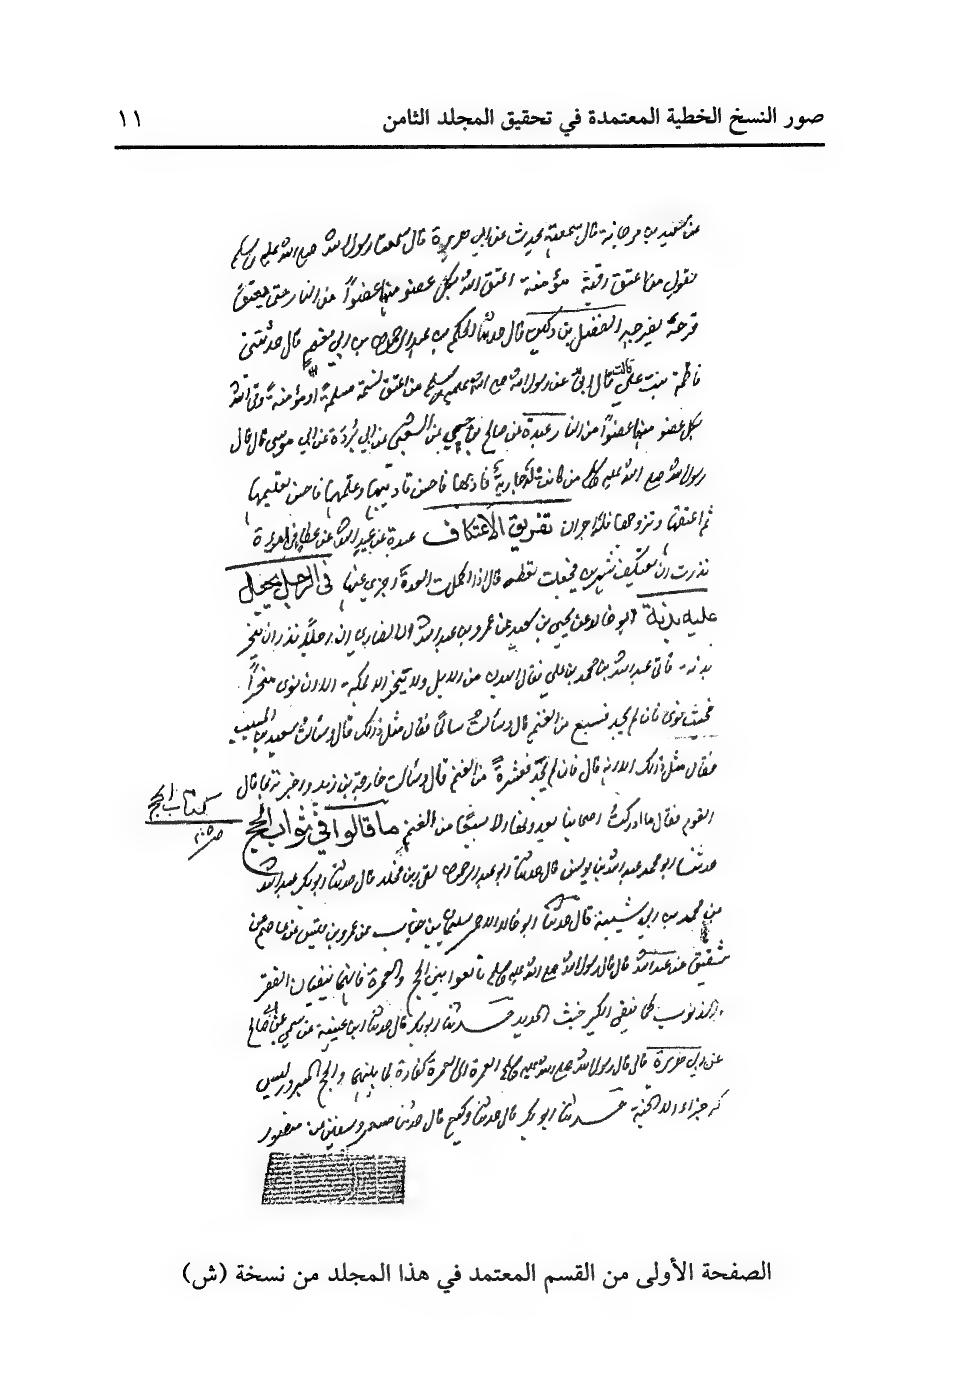 صور النسخ الخطية المعتمدة في تحقيق المجلد الثامن ١١
عن سعيد بن مرجانة قال سمعته يحدث عن ابي هريرة قال سمعت رسول الله صلى الله عليه وسلم
يقول من اعتق رقبة مؤمنة اعتق الله بكل عضو منها عضواً من النار حتى يعتق
فرجه بفرجه الفضل بن دكين قال حدثنا الحكم بن عبد الرحمن بن ابي نعم قال حدثتني
فاطمة بنت علي قالت قال ابي عن رسول الله صلى الله عليه وسلم من اعتق نسمة مسلمة او مؤمنة وقى الله
بكل عضو منها عضواً من النار عبدة عن صالح بن حي عن الشعبي عن ابي بردة عن ابي موسى قال قال
رسول الله صلى الله عليه وسلم من كانت له جارية فادبها فاحسن تاديبها وعلمها فاحسن تعليمها
ثم اعتقها وتزوجها فله اجران تفريق الاعتكاف عبدة عن عبد الله عن عطاء في امرأة
نذرت ان تعتكف شهرين فجعلت تقطعه قال اذا اكملت العدة اجزى عنها في الرجل يجعل
عليه بدنة ابو خالد عن يحيى بن سعيد عن عمرو بن عبد الله الانصاري ان رجلاً نذر ان ينحر
بدنة فاتى عبد الله بن محمد بن علي فقال البدن من الابل ولا ينحر الا بمكة الا ان نوى منحراً
فحيث نوى فان لم يجد فسبع من الغنم قال وسألت سالماً فقال مثل ذلك قال وسألت سعيد بن المسيب
فقال مثل ذلك الا انه قال فان لم يجد فعشرة من الغنم قال وسألت خارجة بن زيد واخبرته بما قال
القوم فقال ما ادركت اصحابنا يعدونها الا سبعاً من الغنم ما قالوا في ثواب الحج
كتاب الحج
حدثنا ابو محمد عبد الله بن يونس قال حدثنا ابو عبد الرحمن بقي بن مخلد قال حدثنا ابو بكر عبد الله
بن محمد بن ابي شيبة قال حدثنا ابو خالد الاحمر سليمان بن حيان عن عمرو بن قيس عن عاصم عن
شقيق عن عبد الله قال قال رسول الله صلى الله عليه وسلم تابعوا بين الحج والعمرة فانهما ينفيان الفقر
والذنوب كما ينفي الكير خبث الحديد حدثنا ابو بكر قال حدثنا ابن عيينة عن سمي عن ابي صالح
عن ابي هريرة قال قال رسول الله صلى الله عليه وسلم العمرة الى العمرة كفارة لما بينهما والحج المبرور ليس
له جزاء الا الجنة حدثنا ابو بكر قال حدثنا وكيع قال حدثنا مسعر وسفين عن منصور
الصفحة الأولى من القسم المعتمد في هذا المجلد من نسخة (ش)